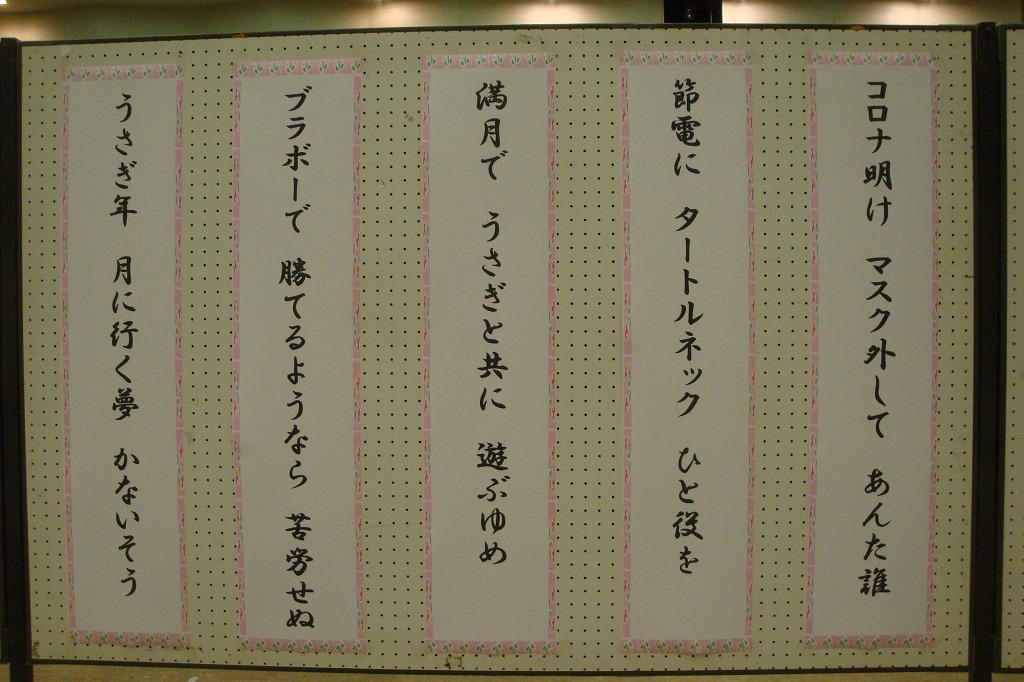 コロナ明け　マスク外して　あんた誰
節電に　タートルネック　ひと役を
満月で　うさぎと共に　遊ぶゆめ
ブラボーで　勝てるようなら　苦労せぬ
うさぎ年　月に行く夢　かないそう